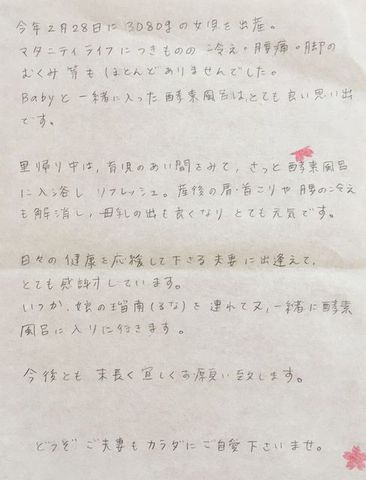 今年2月28日に3080gの女児を出産。
マタニティライフにつきものの冷え・腰痛・脚の
むくみ等もほとんどありませんでした。
Babyと一緒に入った酵素風呂は、とても良い思い出
です。
里帰り中は、育児のあい間をみて、さっと酵素風呂
に入浴しリフレッシュ。産後の肩・首こりや腰の冷え
も解消し、母乳の出も良くなりとても元気です。
日々の健康を応援して下さる夫妻に出逢えて、
とても感謝しています。
いつか、娘の瑠南(るな)を連れて又、一緒に酵素
風呂に入りに行きます。
今後とも末長く宜しくお願い致します。
どうぞご夫妻もカラダにご自愛下さいませ。